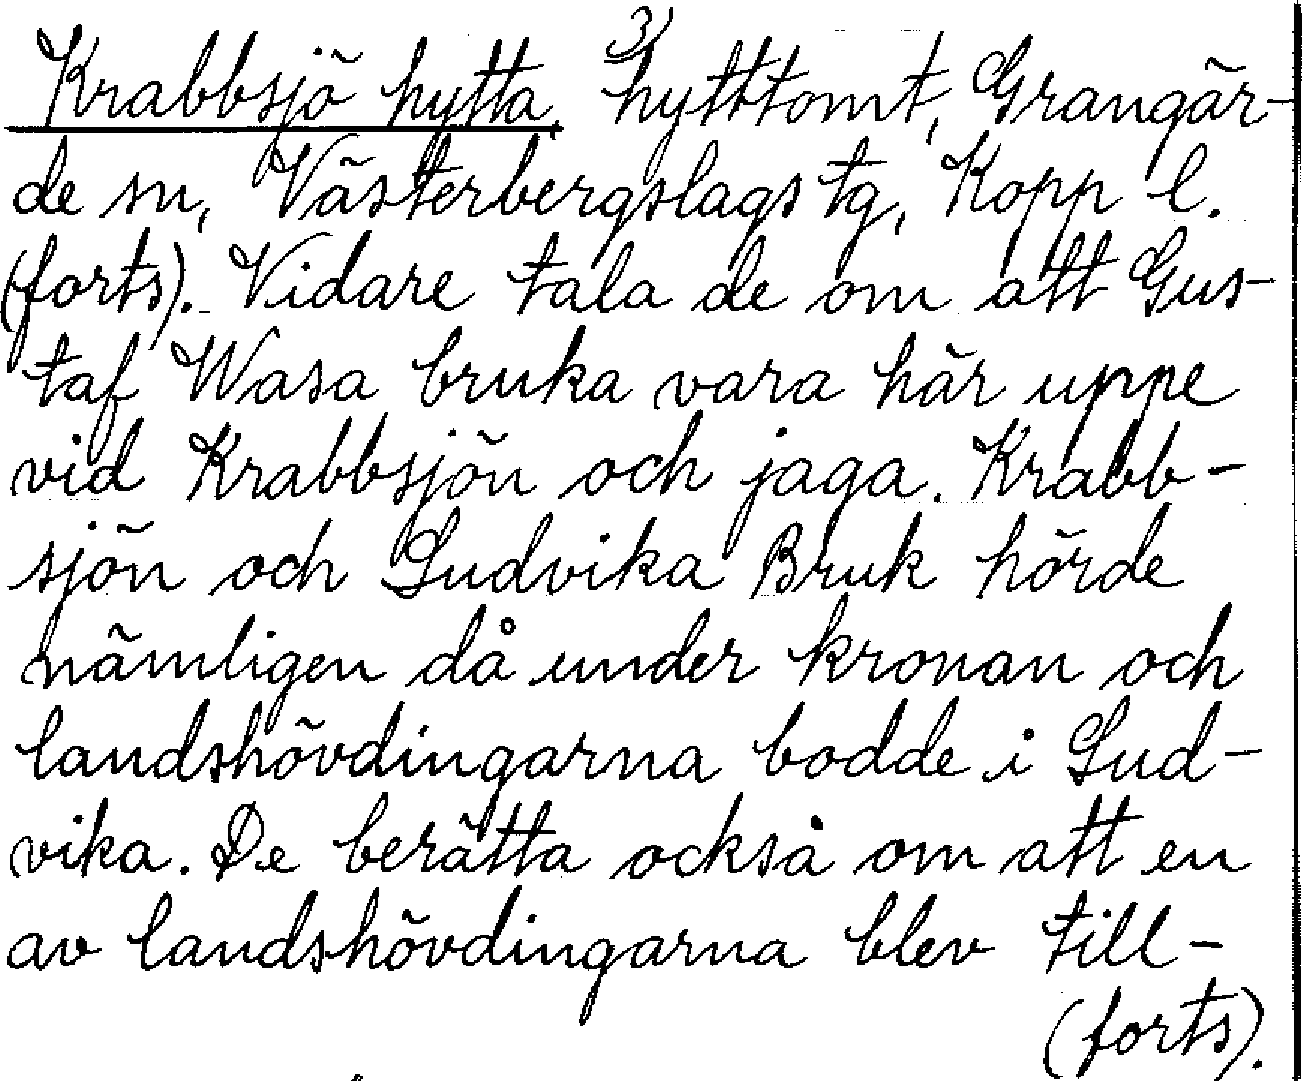 3)
Krabbsjö hytta, hytttomt, Grangär-
de sn, Västerbergslags tg, Kopp l.
(forts). Vidare tala de om att Gus-
taf Wasa bruka vara här uppe
vid Krabbsjön och jaga. Krabb-
sjön och Ludvika Bruk hörde
nämligen då under kronan och
landshövdingarna bodde i Lud-
vika. De berätta också om att en
av landshövdingarna blev till-
(forts).